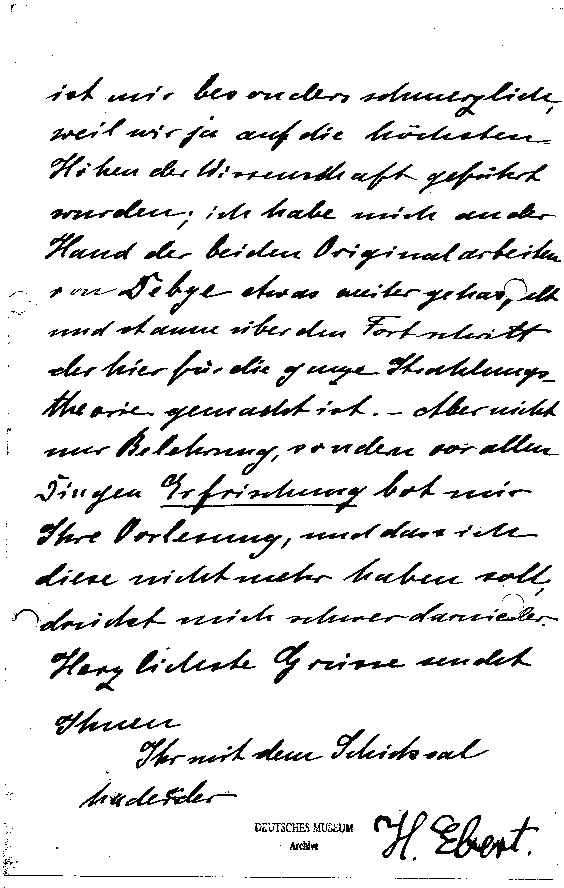 ist mir besonders schmerzlich,
weil wir ja auf die höchsten
Höhen der Wissenschaft geführt
wurden; ich habe mich an der
Hand der beiden Originalarbeiten
von Debye etwas weiter gehaspelt
und staune über den Fortschritt
der hier für die ganze Strahlungs-
theorie gemacht ist. – Aber nicht
nur Belehrung, sondern vor allen
Dingen Erfrischung bot mir
Ihre Vorlesung, und dass ich
diese nicht mehr haben soll,
drückt mich schwer darnieder.
Herzlichste Grüsse sendet
Ihnen
Ihr mit dem Schicksal
hadernder
H. Ebert.
DEUTSCHES MUSEUM
Archive